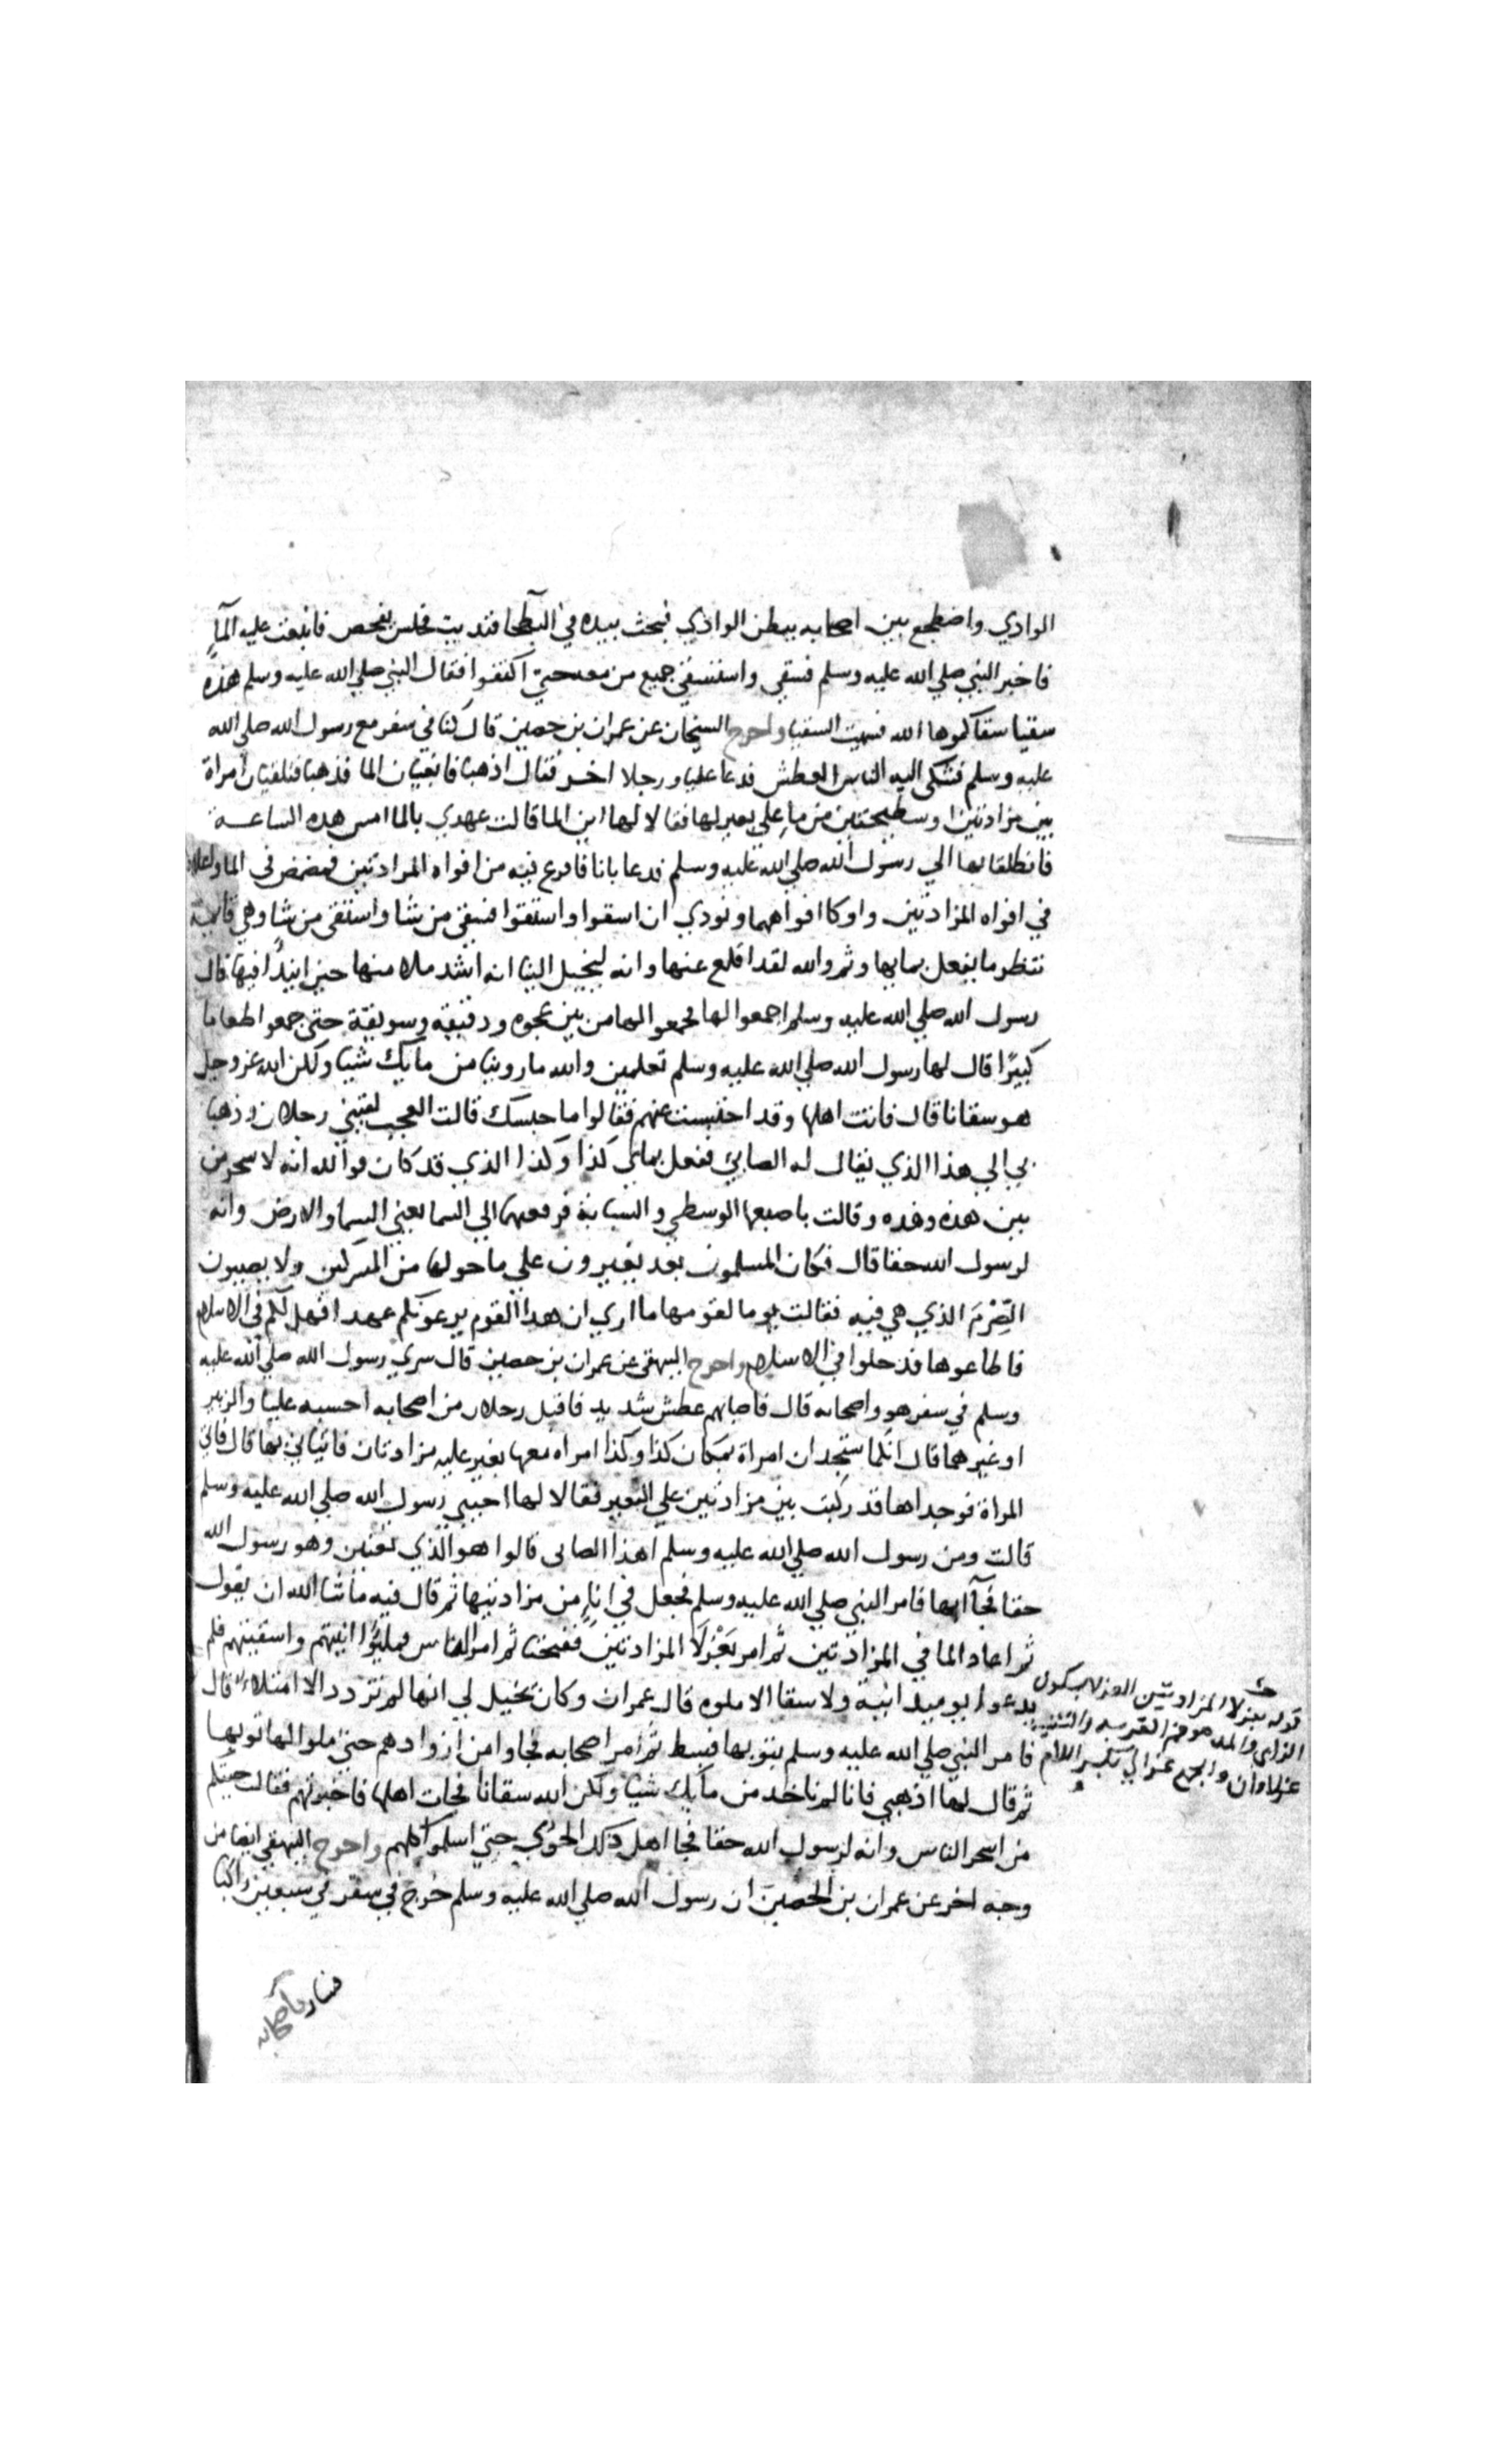 الوادي واضطجع بين اصحابه ببطن الوادي فبحث بيده في البطحا فنديت فجلس ففحص فانبعث عليه المآء
فاخبر النبي صلي الله عليه وسلم فسقي واستسقي جميع من معه حتي اكتفوا فقال النبي صلي الله عليه وسلم هذه
سقيا سقاكموها الله فسميت السقيا واخرج الشيخان عن عمران بن حصين قال كنا في سفر مع رسول الله صلي الله
عليه وسلم فشكى اليه الناس العطش فدعا عليا ورجلا اخر فقال اذهبا فابغيان الما فذهبا فتلقيا امراة
بين مزادتين او سطيحتين من ماءٍ علي بعير لها فقالا لها اين الما قالت عهدي بالما امس هذه الساعة
فانطلقا بها الي رسول الله صلي الله عليه وسلم فدعا بانا فافرغ فيه من افواه المزادتين فمضمض في الما واعاده
في افواه المزادتين واوكا افواههما ونودي ان اسقوا واستقوا فسقى من شا واستقى من شا وهي قايمة
تنظر ما يفعل بمايها وثم والله لقد اقلع عنها وانه ليخيل الينا انه اشد ملا منها حين ابتدا فيها قال
رسول الله صلي الله عليه وسلم اجمعوا لها فجمعوا لها من بين عجوه ودقيقه وسويقة حتى جمعوا طعاما
كثيرًا قال لها رسول الله صلي الله عليه وسلم تعلمين والله ما روينا من مايك شيا ولكن الله عز وجل
هو سقانا قال فاتت اهلها وقد احتبست عنهم فقالوا ما حبسك قالت العجب لقيني رجلان وذهبا
بي الي هذا الذي يقال له الصابئ ففعل بمائي كذا وكذا الذي قد كان فوالله انه لاسحر من
بين هذه وهذه وقالت باصبعها الوسطي والسبابة فرفعتهما الي السما يعني السما والارض وانه
لرسول الله حقا قال فكان المسلمون بعد يغيرون علي ما حولها من المشركين ولا يصيبون
الصِّرْمَ الذي هي فيه فقالت يوما لقومها ما اري ان هذا القوم يدعونكم عمدا فهل لكم في الاسلام
فاطاعوها فدخلوا في الاسلام واخرج البيهقي عن عمران بن حصين قال سري رسول الله صلي الله عليه
وسلم في سفر هو واصحابه قال فاصابهم عطش شديد فاقبل رجلان من اصحابه احسبه عليا والزبير
او غيرهما قال انكما ستجدان امراة بمكان كذا وكذا امراه معها بعير عليه مزادتان فاتياني بها قال فاتيا
المراة فوجداها قد ركبت بين مزادتين علي البعير فقالا لها اجيبي رسول الله صلي الله عليه وسلم
قالت ومن رسول الله صلي الله عليه وسلم اهذا الصابي قالوا هو الذي تعنين وهو رسول الله
حقا فجآا بها فامر النبي صلي الله عليه وسلم فجعل في اناءٍ من مزادتيها ثم قال فيه ما شا الله ان يقول
ثم اعاد الما في المزادتين ثم امر بعَزْلَا المزادتين ففتحتا ثم امر الناس فمليُوا انيتهم واسقيتهم فلم
يدعوا يوميذ انية ولا سقا الا ملوه قال عمران وكان يخيل لي انها لم تزدد الا امتلاء قال
فامر النبي صلي الله عليه وسلم بثوبها فبسط ثم امر اصحابه فجاوا من ازوادهم حتى ملوا لها ثوبها
ثم قال لها اذهبي فانا لم ناخذ من مايك شيا ولكن الله سقانا فجات اهلها فاخبرتهم فقالت جيتكم
من اسحر الناس وانه لرسول الله حقا فجا اهل ذلك الحوي حتى اسلموا كلهم واخرج البيهقي ايضا من
وجه اخر عن عمران بن الحصين ان رسول الله صلي الله عليه وسلم خرج في سفر في سبعين راكبا
قوله بعزلا المزادتين العزلا بسكون
الزاي والمد هو فم القربه والتثنيه
عزلاوان والجمع عزالي بكسر اللام
فسار باصحابه